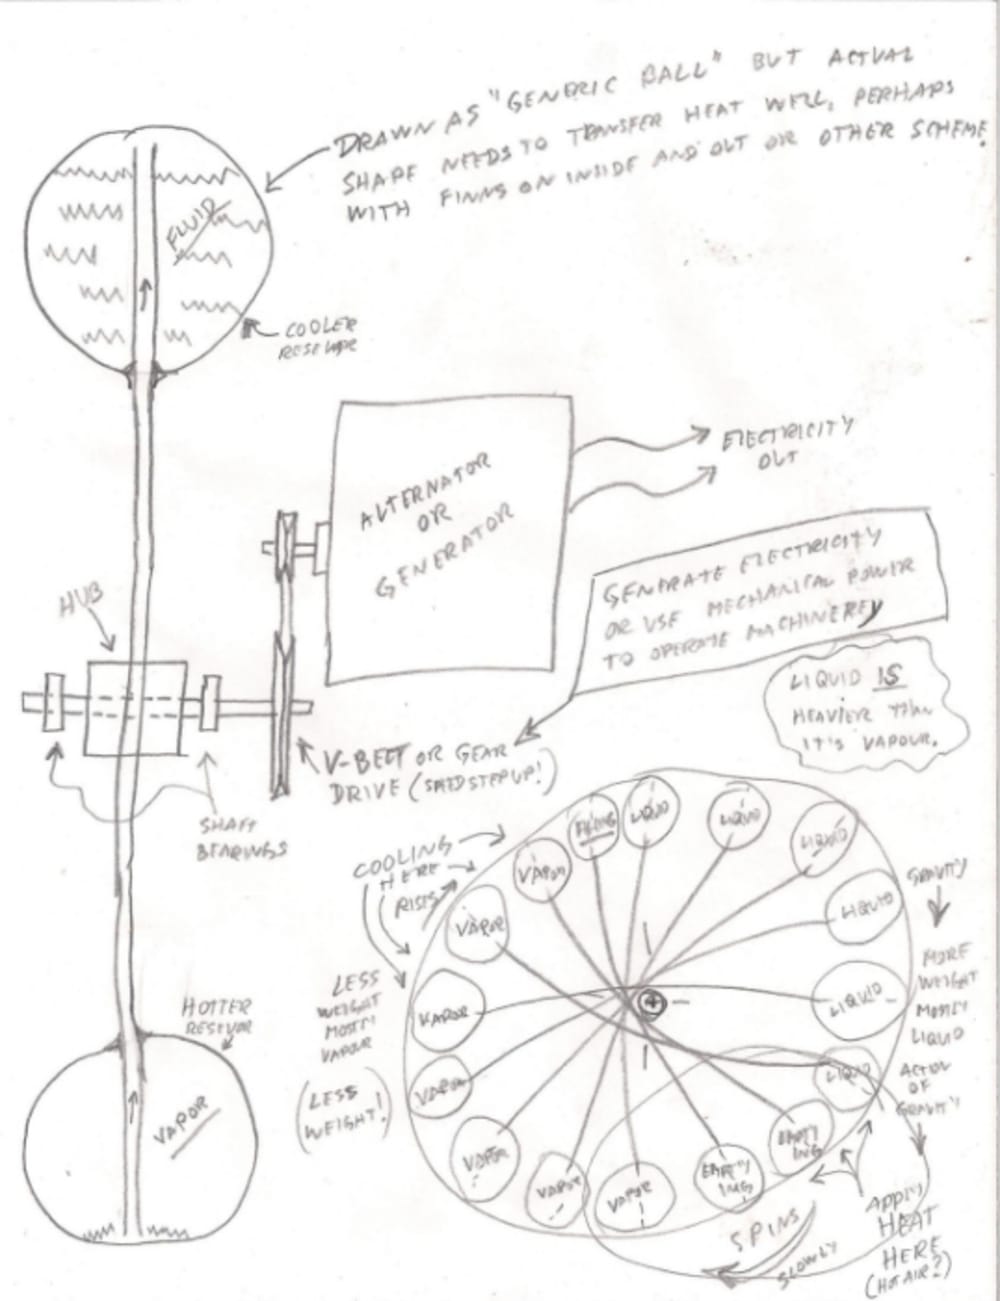 DRAWN AS "GENERIC BALL" BUT ACTUAL
SHAPE NEEDS TO TRANSFER HEAT WELL, PERHAPS
WITH FINNS ON INSIDE AND OUT OR OTHER SCHEME.
FLUID
COOLER
RESEVOR
ELECTRICITY
OUT
ALTERNATOR
OR
GENERATOR
GENERATE ELECTRICITY
OR USE MECHANICAL POWER
TO OPERATE MACHINEREY
HUB
LIQUID IS
HEAVIER THAN
IT'S VAPOUR.
V-BELT OR GEAR
DRIVE (SPEED STEP UP!)
SHAFT
BEARINGS
COOLING
HERE
RISES
FILLING
LIQUID
LIQUID
LIQUID
LIQUID
LIQUID
LIQUID
EMPTY
ING
EMPTY
ING
VAPOR
VAPOR
VAPOR
VAPOR
VAPOR
VAPOR
VAPOR
GRAVITY
MORE
WEIGHT
MOSTLY
LIQUID
ACTION
OF
GRAVITY
LESS
WEIGHT
MOSTLY
VAPOUR
(LESS
WEIGHT!)
HOTTER
RESEVOR
VAPOR
APPLY
HEAT
HERE
(HOT AIR?)
SPINS
SLOWLY